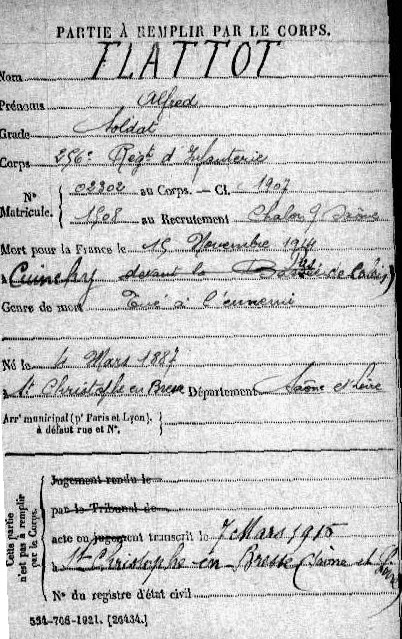 PARTIE À REMPLIR PAR LE CORPS.
Nom FLATTOT
Prénoms Alfred
Grade Soldat
Corps 256e Régt d'Infanterie
N° Matricule. { 02202 au Corps. — Cl. 1907
1508 au Recrutement Chalon s/ Saône
Mort pour la France le 15 Novembre 1914
à Cuinchy devant la Bassée (Pas de Calais)
Genre de mort Tué à l'ennemi
Né le 4 Mars 1887
à St Christophe en Bresse Département Saône et Loire
Arrt municipal (pr Paris et Lyon),
à défaut rue et N°.
Cette partie n'est pas à remplir par le Corps.
Jugement rendu le
par le Tribunal de
acte ou jugement transcrit le 7 Mars 1915
à St Christophe en Bresse (Saône et Loire)
N° du registre d'état civil
534-708-1921. [26434.]